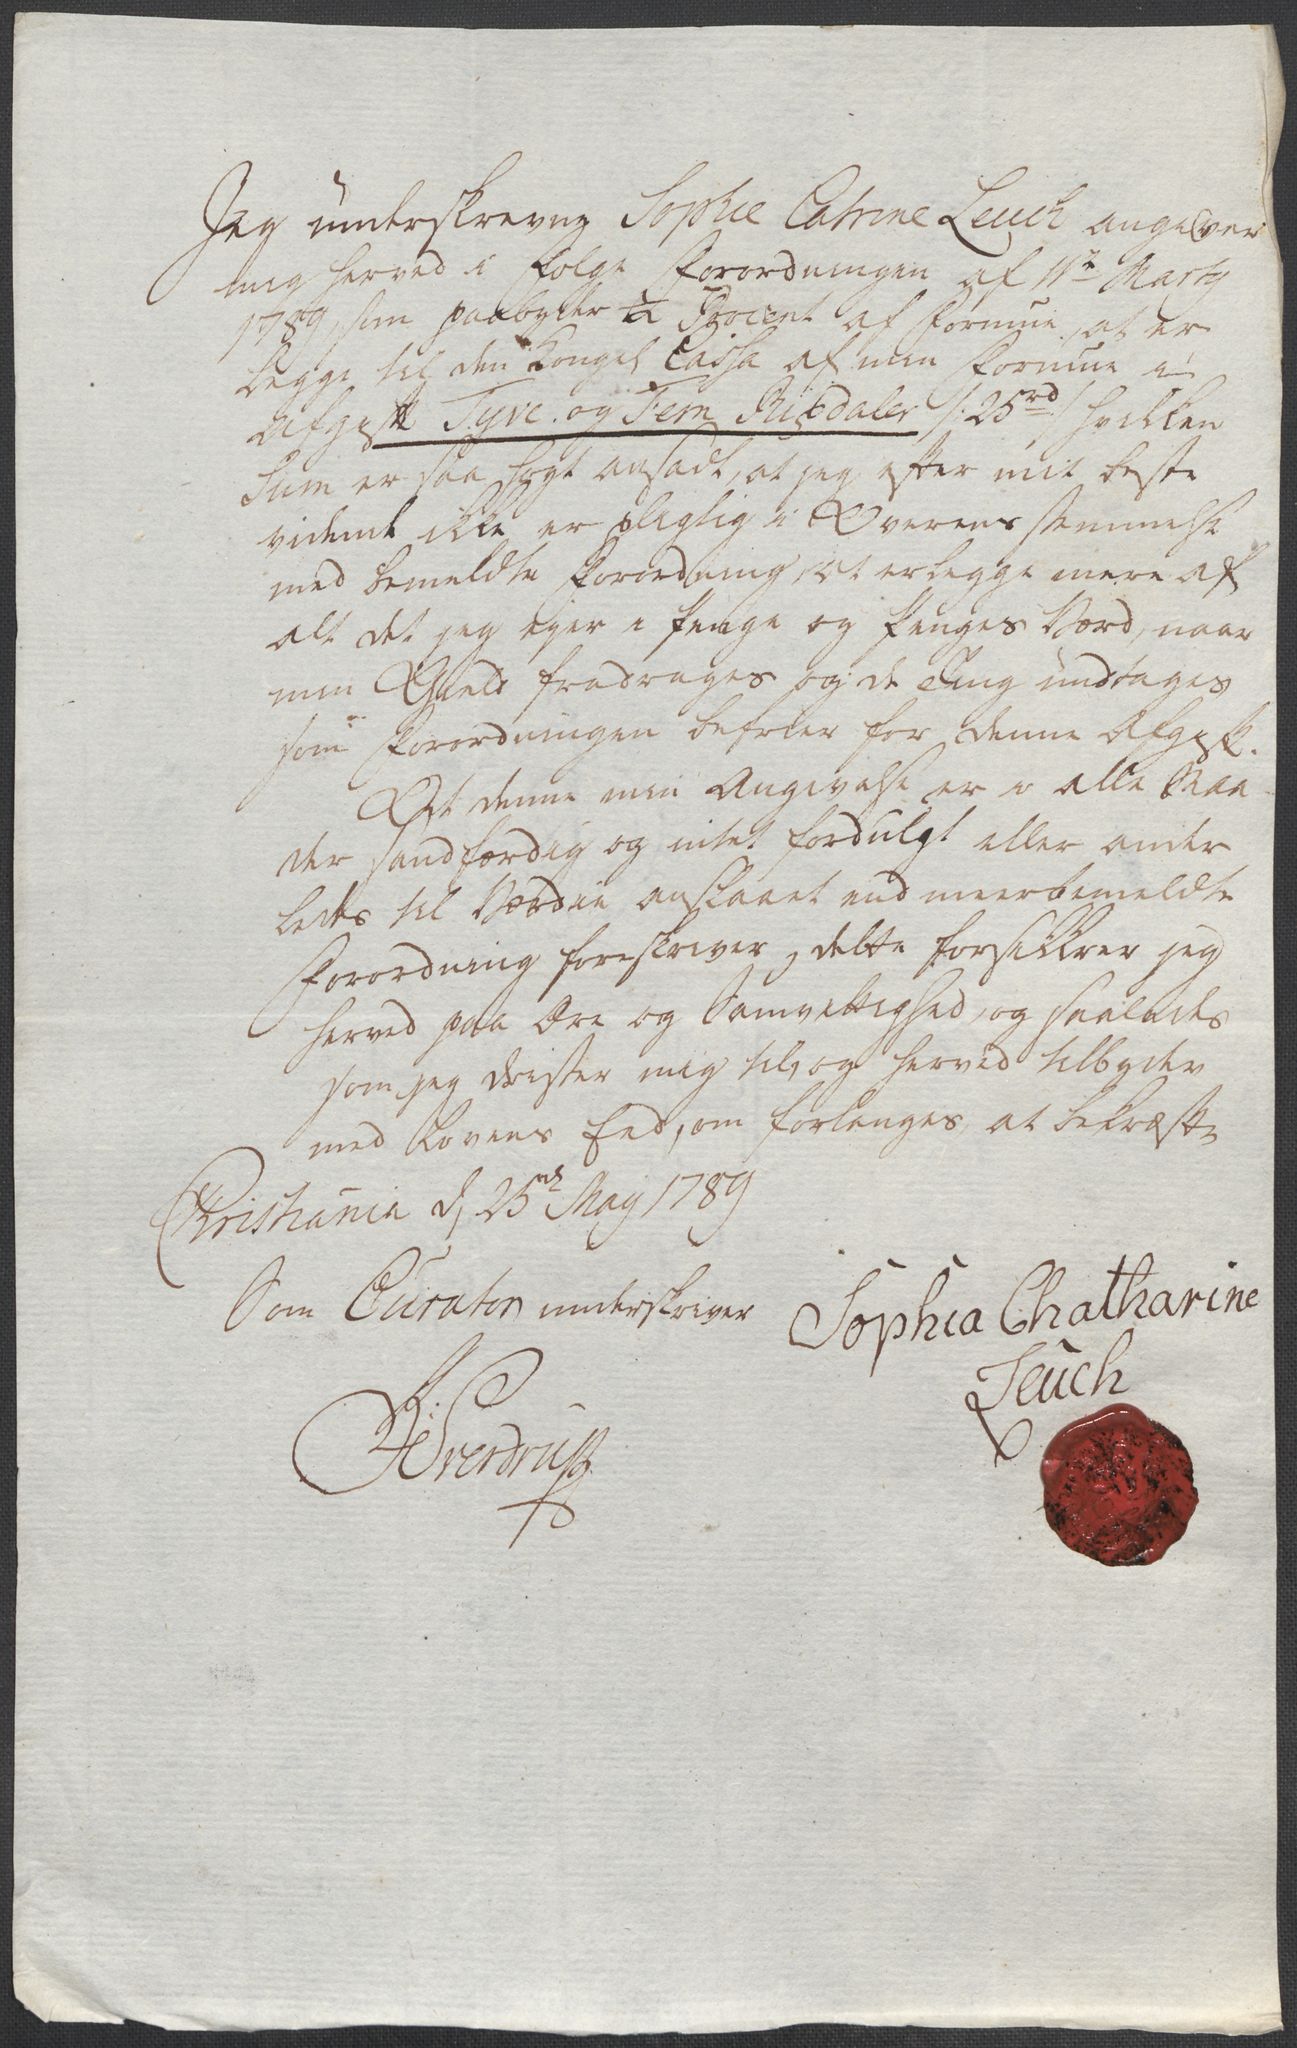 Jeg underskrevne Sophie Catrine Leuch angiver
mig herved i følge Forordningen af 11te Martij
1789, som paabyder ½ Procent af Formue, at er
legge til den Kongel Cassa af min Formue i
Afgift Tyve og Fem Rixdaler /: 25 rd :/ hvilken
Sum er saa høyt ansadt, at jeg efter mit beste
vidende ikke er pligtig i Overensstemmelse
med bemeldte Forordning, at erlegge mere af
alt det jeg ejer i Penge og Penges Værd, naar
min Gield fradrages og de Ting undtages
som Forordningen befrier for denne Afgift.
At denne min Angivelse er i alle Maa
der sandfærdig og intet fordulgt eller ander
ledes til Værdie anslaaet end meerbemeldte
Forordning foreskriver, dette forsikkrer jeg
herved paa Ære og Samvittighed, og saaledes
som jeg drister mig til, og herved tilbyder
med Lovens Eed, om forlanges, at bekræfte
Christiania d 25de May 1789
Som Curator underskriver
Sophia Chatharine
Leuch
Sverdrup